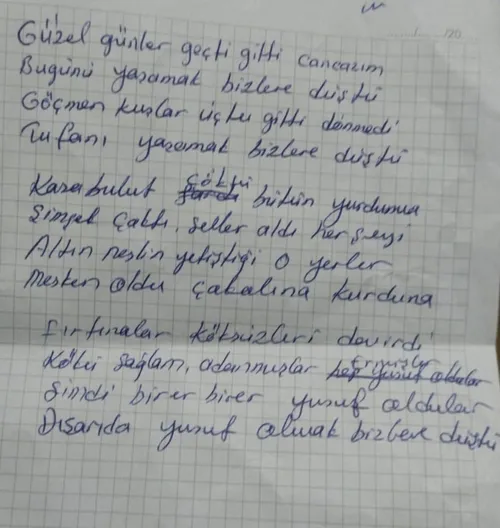 Güzel günler geçti gitti cancazım
Bugünü yaşamak bizlere düştü
Göçmen kuşlar üçtu gitti dönmedi
Tufanı yaşamak bizlere düştü
Karabulut çöktü bütün yurduma
Şimşek Çaktı, Seller aldı herşeyi
Altın neslin yetiştiği o yerler
Mesken oldu çakalına kurduna
Fırtınalar köksüzleri devirdi
Kökü sağlam, adanmışlar ermişler
Şimdi birer birer yusuf oldular
Dışarıda yusuf olmak bizlere düştü